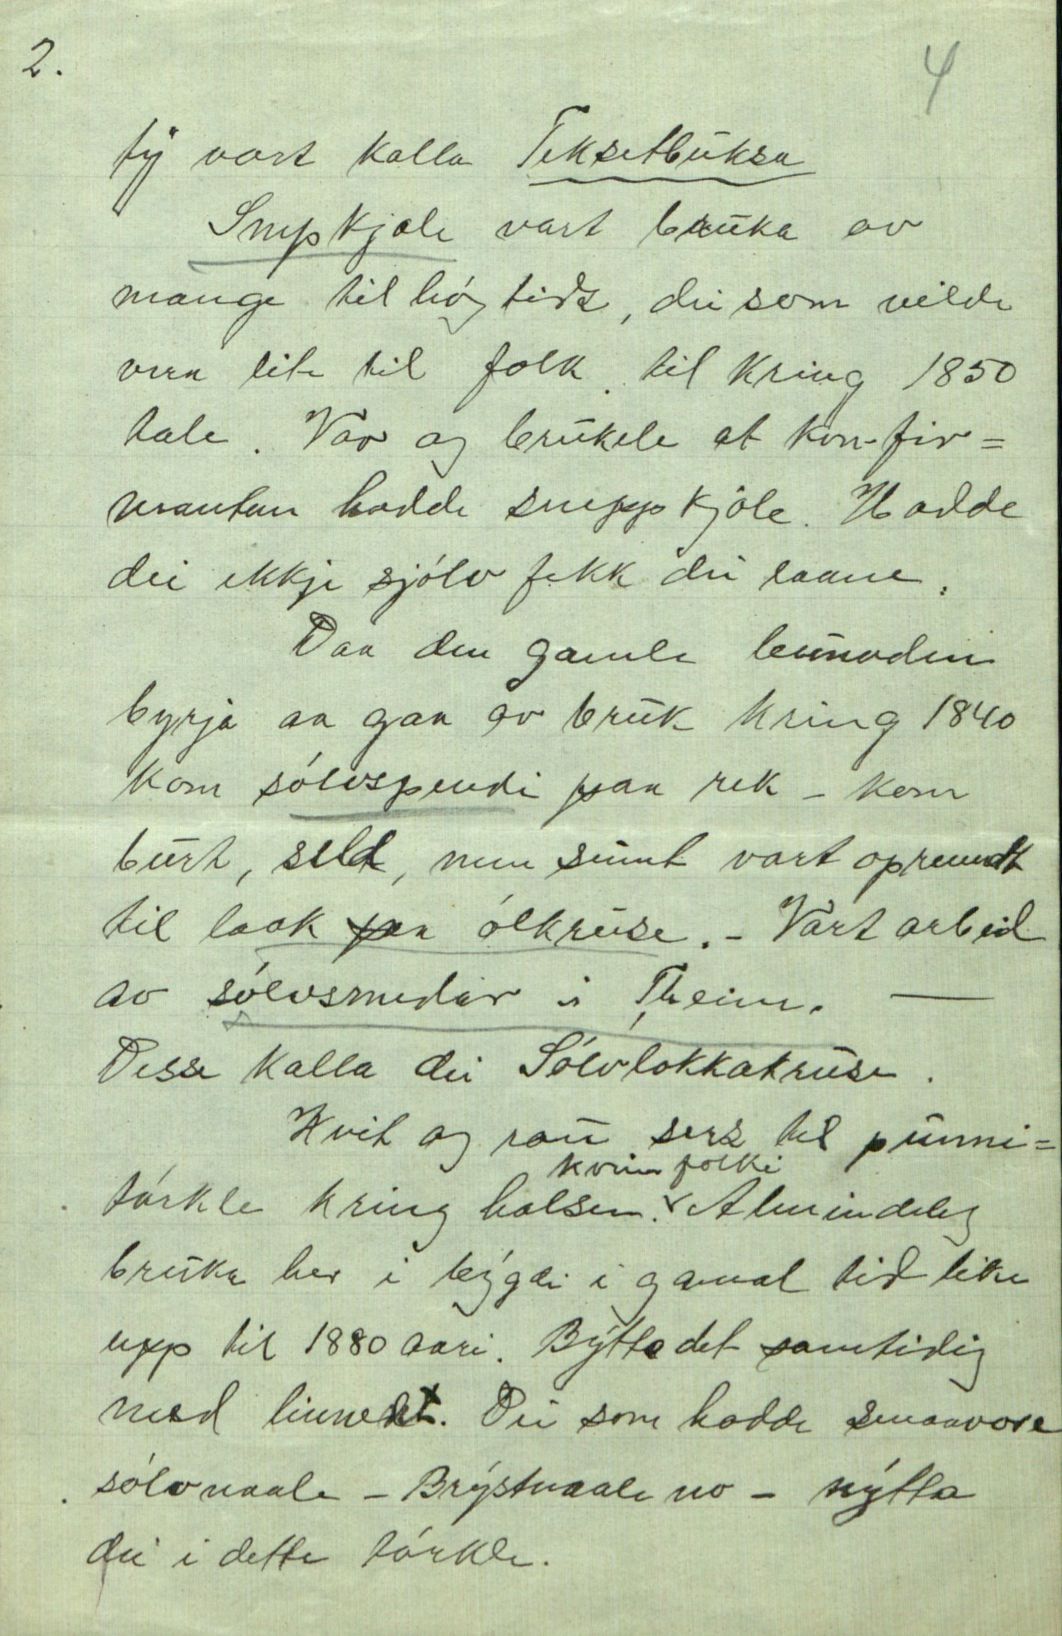 2. 4
ty vart kalla Teksetbuksa
Snipkjole vart bruka av
mange til høgtids, dei som vilde
vera lite til folk til kring 1850
tale. Var og brukele at konfir=
mantan hadde sneppkjole. Hadde
dei ikkje sjølv fekk dei laane.
Daa den gamle bunaden
byrja aa gaa av bruk kring 1840
kom sølvspendi paa rek - kom
burt, seld, men sumt vart oprundt
til laak paa ølkruse. - Vart arbeid
av sølvsmedar i Theim. —
Desse kalla dei Sølvlokkakruse.
Kvit og rau sers til punni=
tørkle kring halsen. Almindeleg
kvinnfolki
bruka her i bygdi i gamal tid like
upp til 1880 aari. Bytte det samtidig
med linnedet. Dei som hadde smaavore
sølvnaale - Brystnaale no - nytta
dei i dette tørkle.